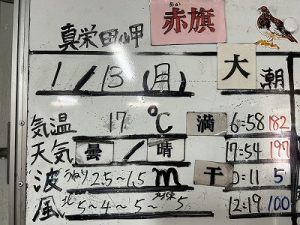 真栄田岬 赤旗
1/3(月) 大潮
気温 17℃ 満 6:58 182
天気 曇/晴 17:54 197
波 うねり 2.5~1.5m 干 0:11 5
風 北 5~4~5~ 5 12:19 100